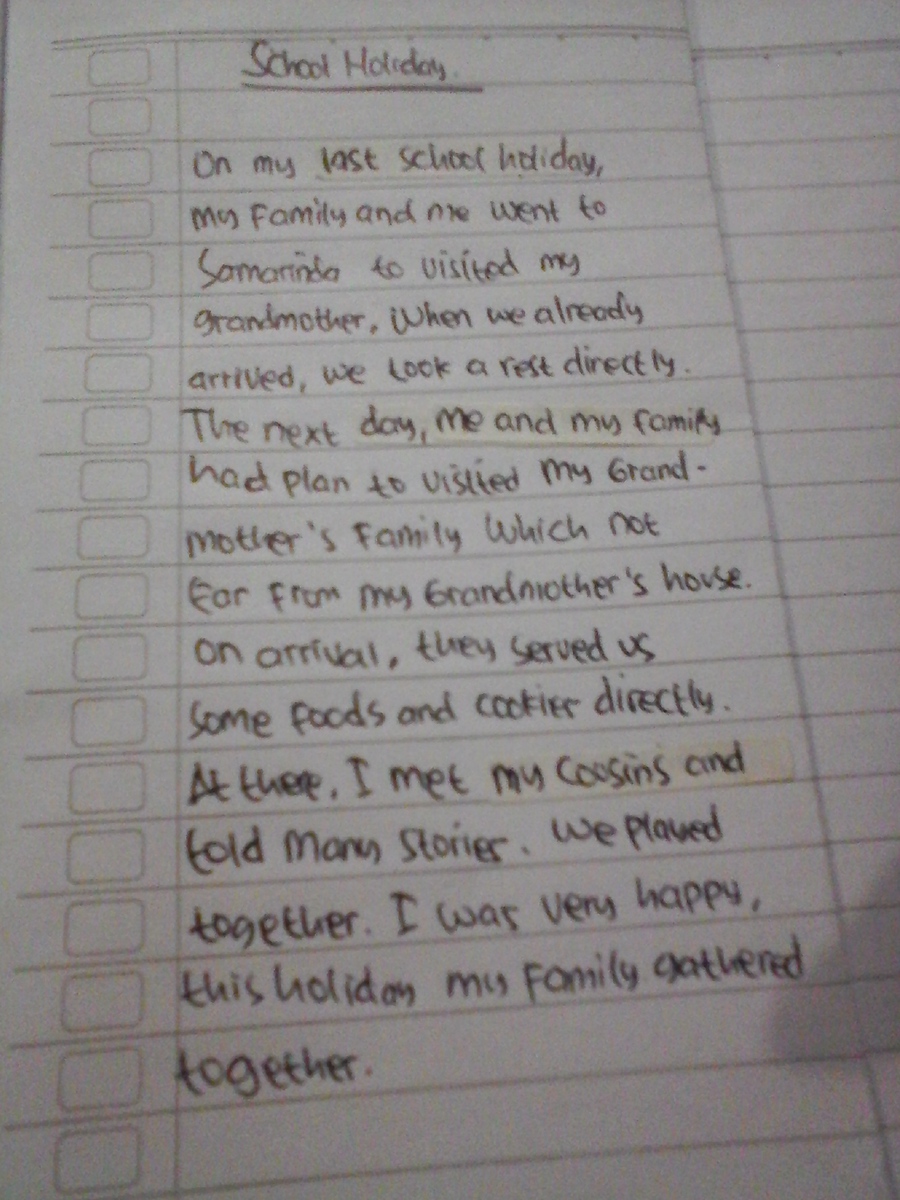 School Holiday.
On my last school holiday,
my family and me went to
Samarinda to visited my
grandmother. When we already
arrived, we took a rest directly.
The next day, me and my family
had plan to visited my Grand-
mother's family which not
far from my Grandmother's house.
On arrival, they served us
some foods and cookies directly.
At there, I met my coosins and
told many stories. We played
together. I was very happy,
this holiday my family gathered
together.